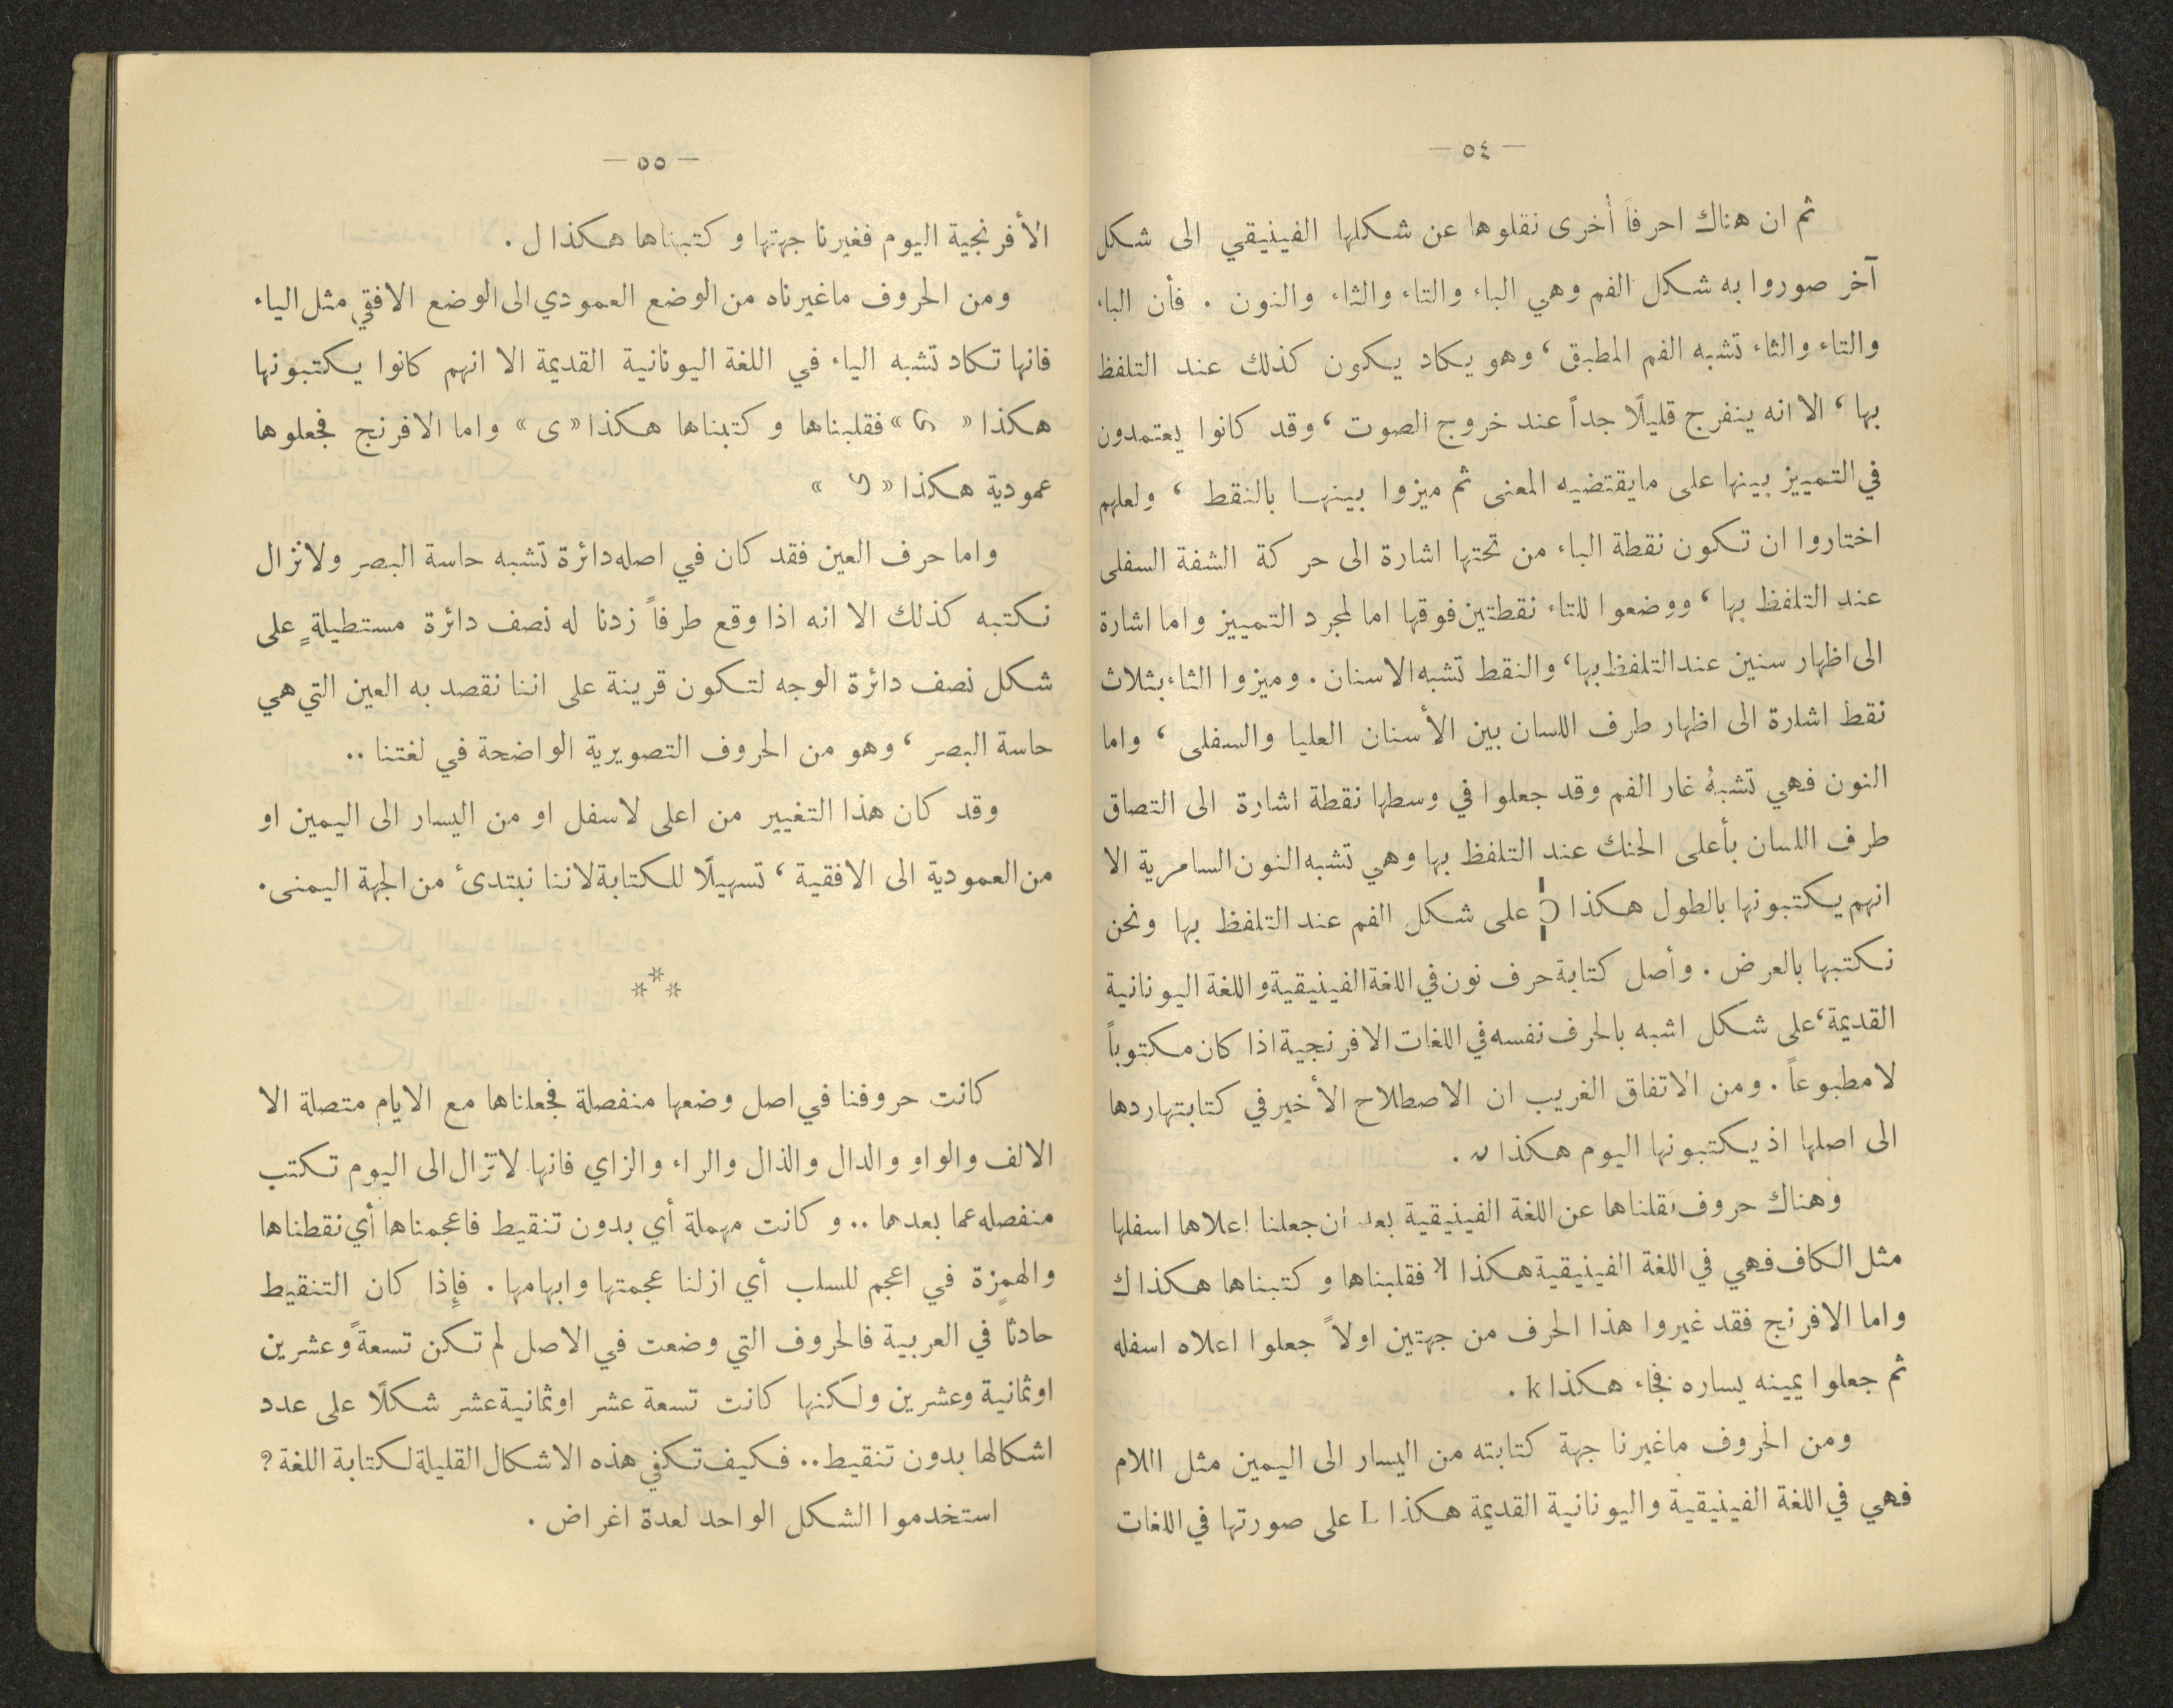 — ٥٤ —
ثم ان هناك احرفاً أُخرى نقلوها عن شكلها الفينيقي الى شكل
آخر صوروا به شكل الفم وهي الباء والتاء والثاء والنون . فأن الباء
والتاء والثاء تشبه الفم المطبق ، وهو يكاد يكون كذلك عند التلفظ
بها ، الا انه ينفرج قليلًا جداً عند خروج الصوت ، وقد كانوا يعتمدون
في التمييز بينها على مايقتضيه المعنى ثم ميزوا بينهـا بالنقط ، ولعلهم
اختاروا ان تكون نقطة الباء من تحتها اشارة الى حركة الشفة السفلى
عند التلفظ بها ، ووضعوا للتاء نقطتين فوقها اما لمجرد التمييز واما اشارة
الى اظهار سنين عند التلفظ بها ، والنقط تشبه الاسنان . وميزوا الثاء بثلاث
نقط اشارة الى اظهار طرف اللسان بين الأسنان العليا والسفلى ، واما
النون فهي تشبهُ غار الفم وقد جعلوا في وسطها نقطة اشارة الى التصاق
طرف اللسان بأعلى الحنك عند التلفظ بها وهي تشبه النون السامرية الا
انهم يكتبونها بالطول هكذا على شكل الفم عند التلفظ بها ونحن
نكتبها بالعرض . وأصل كتابة حرف نون في اللغة الفينيقية واللغة اليونانية
القديمة ، على شكل اشبه بالحرف نفسه في اللغات الافرنجية اذا كان مكتوباً
لا مطبوعاً . ومن الاتفاق الغريب ان الاصطلاح الأخير في كتابتها ردها
الى اصلها اذ يكتبونها اليوم هكذا .
وهناك حروف نقلناها عن اللغة الفينيقية بعد أن جعلنا اعلاها اسفلها
مثل الكاف فهي في اللغة الفينيقية هكذا فقلبناها وكتبناها هكذا ك
واما الافرنج فقد غيروا هذا الحرف من جهتين اولاً جعلوا اعلاه اسفله
ثم جعلوا يمينه يساره فجاء هكذا k .
ومن الحروف ماغيرنا جهة كتابته من اليسار الى اليمين مثل اللام
فهي في اللغة الفينيقية واليونانية القديمة هكذا L على صورتها في اللغات
— ٥٥ —
الأفرنجية اليوم فغيرنا جهتها وكتبناها هكذا ل .
ومن الحروف ماغيرناه من الوضع العمودي الى الوضع الافقي مثل الياء
فانها تكاد تشبه الياء في اللغة اليونانية القديمة الا انهم كانوا يكتبونها
هكذا « » فقلبناها وكتبناها هكذا « ى » واما الافرنج فجعلوها
عمودية هكذا « »
واما حرف العين فقد كان في اصله دائرة تشبه حاسة البصر ولا تزال
نكتبه كذلك الا انه اذا وقع طرفاً زدنا له نصف دائرة مستطيلةٍ على
شكل نصف دائرة الوجه لتكون قرينة على اننا نقصد به العين التي هي
حاسة البصر ، وهو من الحروف التصويرية الواضحة في لغتنا ..
وقد كان هذا التغيير من اعلى لاسفل او من اليسار الى اليمين او
من العمودية الى الافقية ، تسهيلًا للكتابة لاننا نبتدئ من الجهة اليمنى .
***
كانت حروفنا في اصل وضعها منفصلة فجعلناها مع الايام متصلة الا
الالف والواو والدال والذال والراء والزاي فانها لا تزال الى اليوم تكتب
منفصله عما بعدها .. وكانت مهملة أي بدون تنقيط فاعجمناها أي نقطناها
والهمزة في اعجم للسلب أي ازلنا عجمتها وابهامها . فإِذا كان التنقيط
حادثاً في العربية فالحروف التي وضعت في الاصل لم تكن تسعةً وعشرين
او ثمانية وعشرين ولكنها كانت تسعة عشر او ثمانية عشر شكلًا على عدد
اشكالها بدون تنقيط .. فكيف تكفي هذه الاشكال القليلة لكتابة اللغة ؟
استخدموا الشكل الواحد لعدة اغراض .